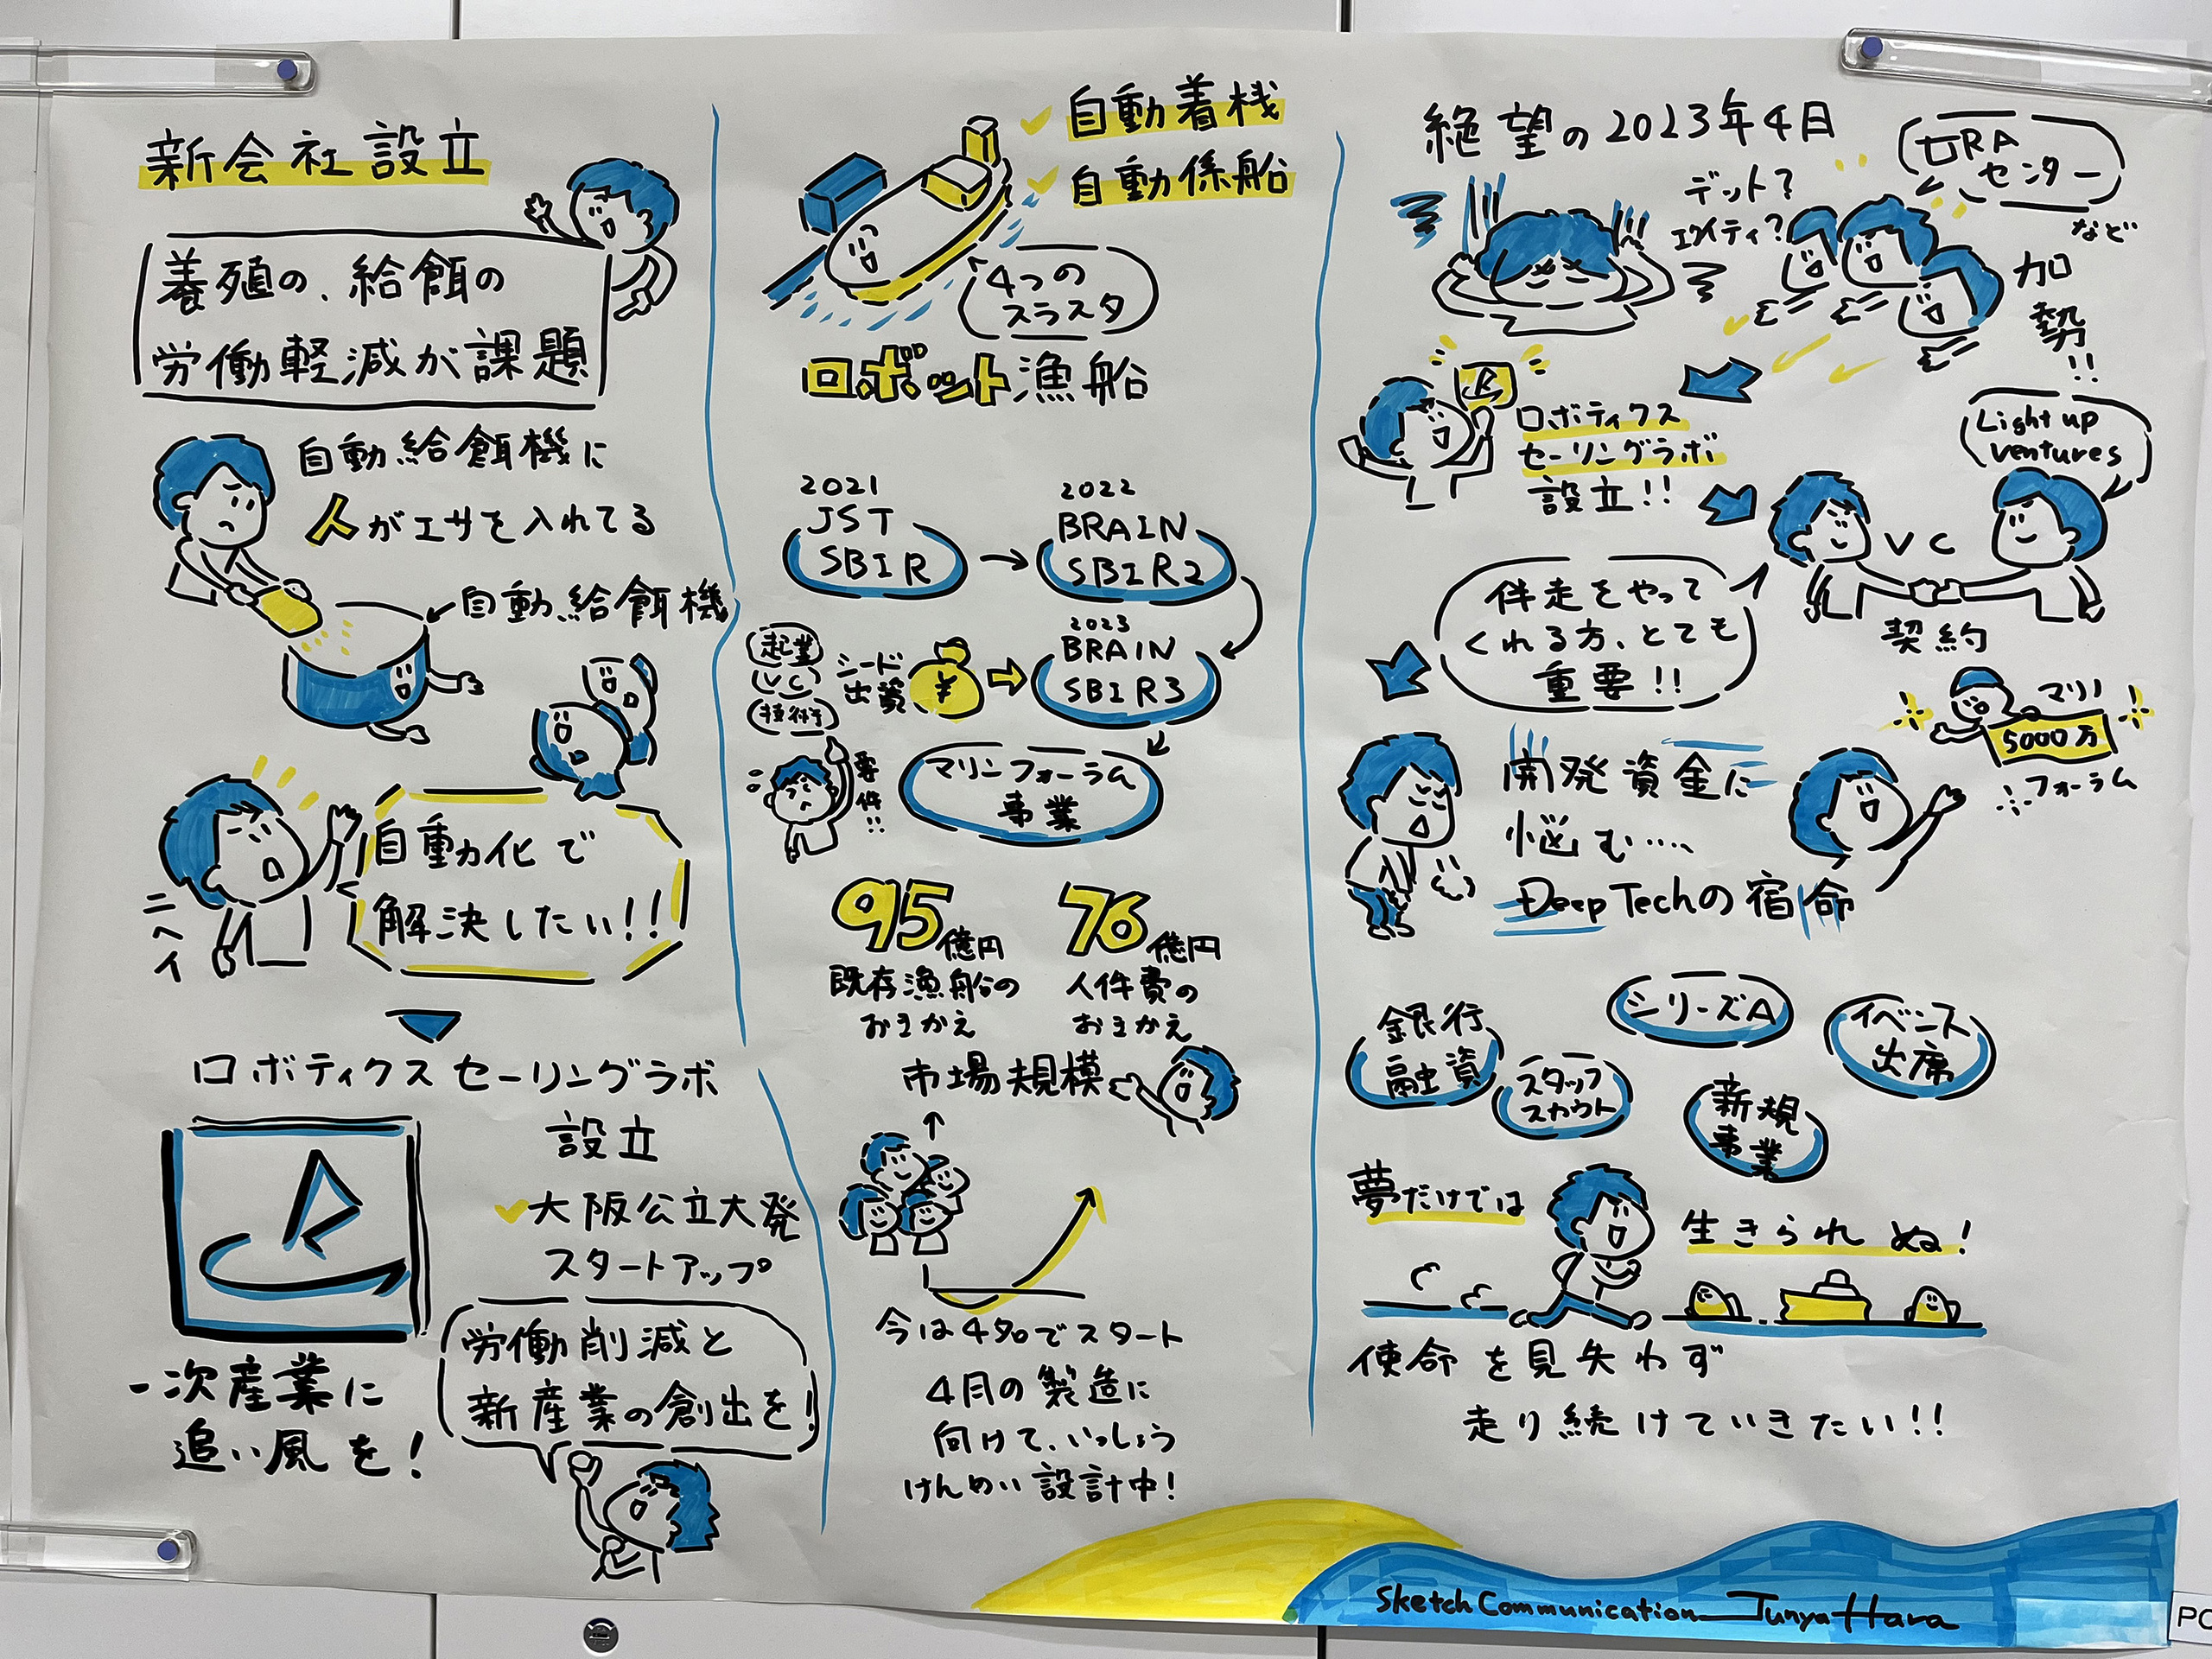 新会社設立
養殖の、給餌の
労働軽減が課題
自動給餌機に
人がエサを入れてる
自動給餌機
自動化で
解決したい!!
ニヘイ
ロボティクスセーリングラボ
設立
大阪公立大発
スタートアップ
労働削減と
新産業の創出を!
一次産業に
追い風を!
自動着桟
自動係船
4つの
スラスタ
ロボット漁船
2021
JST
SBIR
2022
BRAIN
SBIR2
2023
BRAIN
SBIR3
起業
VC
技術
シード
出資
¥
要件!!
マリンフォーラム
事業
95億円
既存漁船の
おきかえ
76億円
人件費の
おきかえ
市場規模
今は4名でスタート
4月の製造に
向けて、いっしょう
けんめい設計中!
絶望の2023年4月
デット?
エクイティ?
URA
センター
など
加勢!!
ロボティクス
セーリングラボ
設立!!
Light up
ventures
VC
契約
伴走をやって
くれる方、とても
重要!!
開発資金に
悩む....
DeepTechの宿命
マリン
5000万
フォーラム
銀行
融資
シリーズA
イベント
出席
スタッフ
スカウト
新規
事業
夢だけでは
生きられぬ!
使命を見失わず
走り続けていきたい!!
Sketch Communication Junya Hara